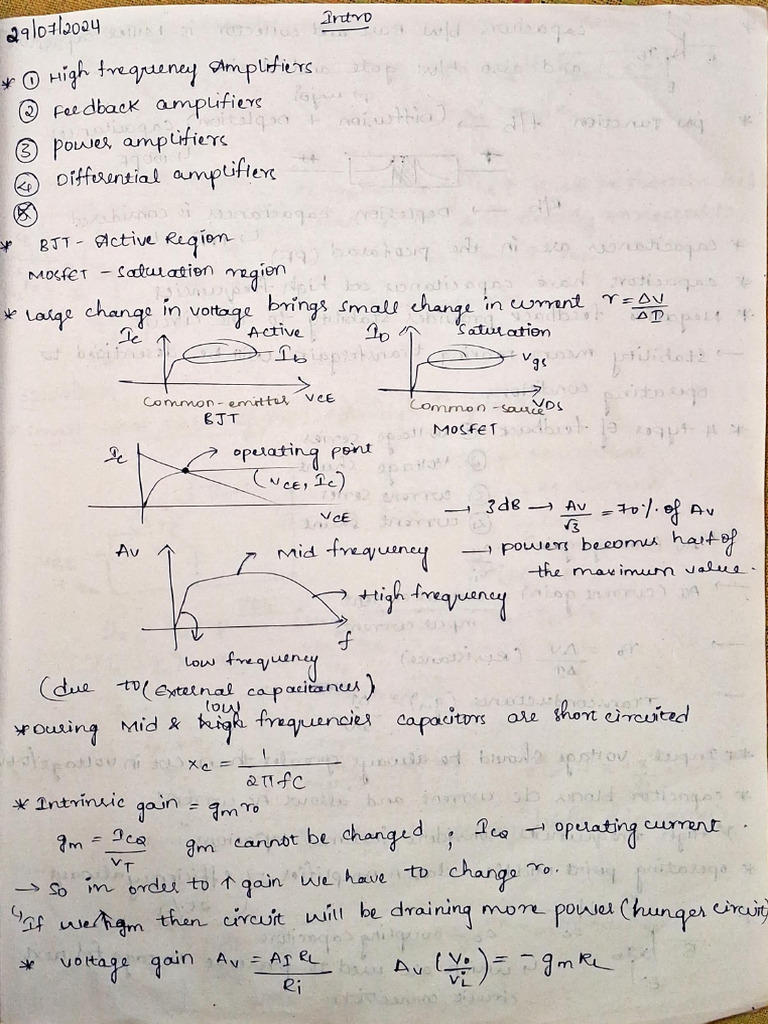 29/07/2024
Intro
* ① High frequency Amplifiers
② Feedback amplifiers
③ power amplifiers
④ Differential amplifiers
* BJT - Active Region
MOSFET - Saturation region
* Large change in voltage brings small change in current r = ΔV/ΔI
Ic Active Ib VCE
Common-emitter
BJT
ID Saturation Vgs VDS
Common-source
MOSFET
Ic operating point
(VCE, Ic)
VCE
→ 3dB → Av/√3 = 70% of Av
→ powers becomes half of
the maximum value.
Av Mid frequency
High frequency
f
low frequency
(due to (External capacitances)
low
* During Mid & high frequencies capacitors are short circuited
xc = 1/2πfC
* Intrinsic gain = gmro
gm = ICQ/VT gm cannot be changed ; ICQ → operating current.
→ So in order to ↑ gain we have to change ro.
↳ If we ↑gm then circuit will be draining more power (hunger circuit)
* voltage gain Av = AI RL/Ri Av (Vo/Vi) = - gm RL